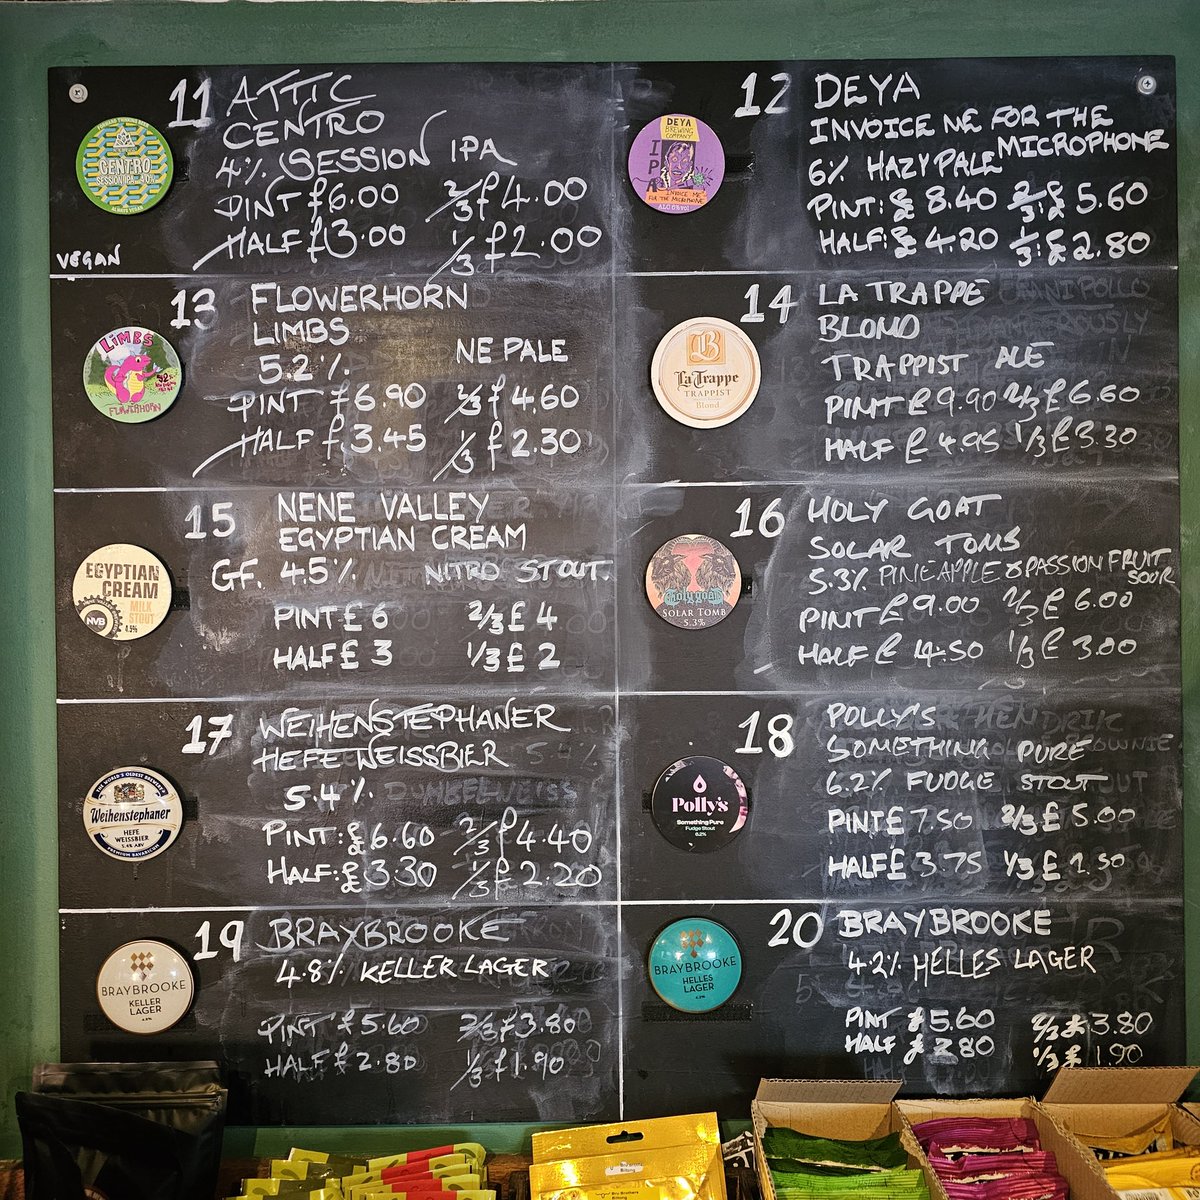 11 ATTIC
CENTRO
4% SESSION IPA
PINT £6.00 2/3 £4.00
HALF £3.00 1/3 £2.00
VEGAN
CENTRO
SESSION IPA 4.0%
ALWAYS VEGAN
12 DEYA
INVOICE ME FOR THE
MICROPHONE
6% HAZY PALE
PINT: £ 8.40 2/3: £ 5.60
HALF: £ 4.20 1/3: £ 2.80
DEYA
BREWING
COMPANY
IPA
INVOICE ME
FOR THE MICROPHONE
13 FLOWERHORN
LIMBS
5.2% NE PALE
PINT £6.90 2/3 £4.60
HALF £3.45 1/3 £2.30
LIMBS
FLOWERHORN
14 LA TRAPPE
BLOND
TRAPPIST ALE
PINT £9.90 2/3 £6.60
HALF £4.95 1/3 £3.30
B
La Trappe
TRAPPIST
Blond
15 NENE VALLEY
EGYPTIAN CREAM
GF. 4.5% NITRO STOUT.
PINT £ 6 2/3 £ 4
HALF £ 3 1/3 £ 2
EGYPTIAN
CREAM
MILK
STOUT
NVB
4.5%
16 HOLY GOAT
SOLAR TOMS
5.3% PINEAPPLE & PASSION FRUIT
SOUR
PINT £ 9.00 2/3 £ 6.00
HALF £ 4.50 1/3 £ 3.00
Holy goat
SOLAR TOMB
5.3%
17 WEIHENSTEPHANER
HEFEWEISSBIER
5.4%
PINT: £6.60 2/3 £4.40
HALF: £3.30 1/3 £2.20
THE WORLD'S OLDEST BREWERY
Weihenstephaner
HEFE
WEISSBIER
5.4% ABV
PREMIUM BAVARICUM
18 POLLY'S
SOMETHING PURE
6.2% FUDGE STOUT
PINT £ 7.50 2/3 £ 5.00
HALF £ 3.75 1/3 £ 2.50
Polly's
Something Pure
Fudge Stout
6.2%
19 BRAYBROOKE
4.8% KELLER LAGER
PINT £5.60 2/3 £3.80
HALF £2.80 1/3 £1.90
BRAYBROOKE
KELLER
LAGER
4.8%
20 BRAYBROOKE
4.2% HELLES LAGER
PINT £5.60 2/3 £3.80
HALF £2.80 1/3 £1.90
BRAYBROOKE
HELLES
LAGER
4.2%